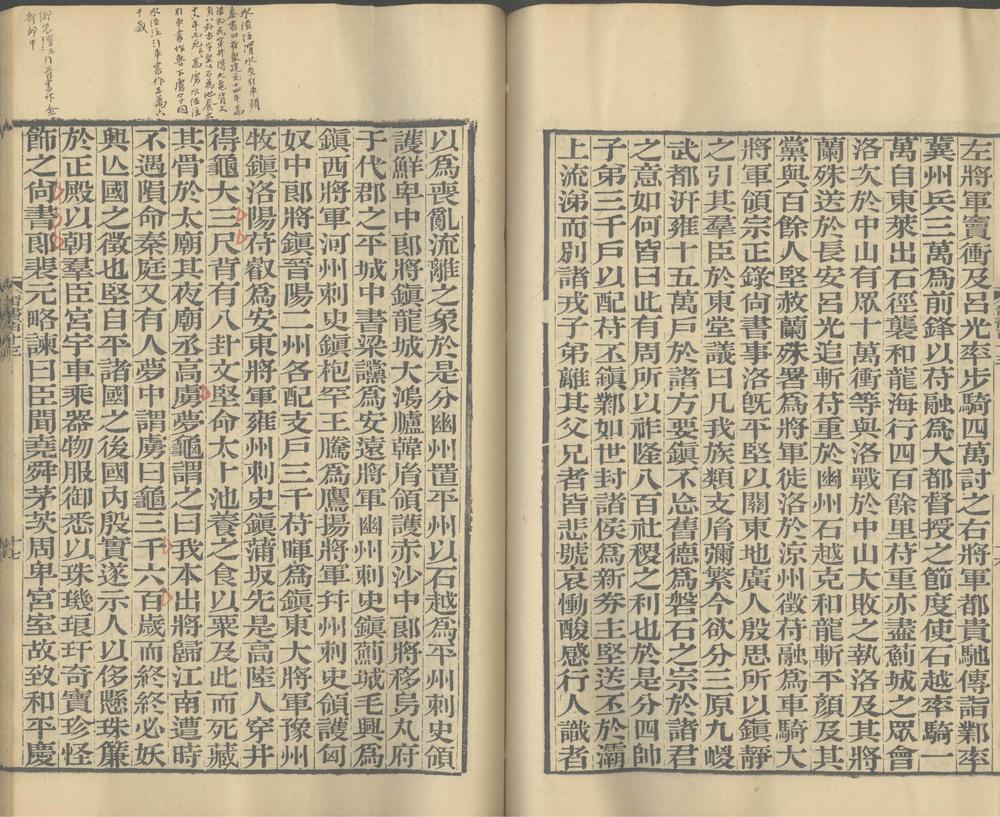 左將軍竇衝及呂光率步騎四萬討之右將軍都貴馳傳詣鄴率
冀州兵三萬爲前鋒以苻融爲大都督授之節度使石越率騎一
萬自東萊出石徑襲和龍海行四百餘里苻重亦盡薊城之眾會
洛次於中山有眾十萬衝等與洛戰於中山大敗之執洛及其將
蘭殊送於長安呂光追斬苻重於幽州石越克和龍斬平顏及其
黨與百餘人堅赦蘭殊署爲將軍徙洛於涼州徵苻融爲車騎大
將軍領宗正錄尙書事洛旣平堅以關東地廣人殷思所以鎭靜
之引其羣臣於東堂議曰凡我族類支胤彌繁今欲分三原九嵕
武都汧雍十五萬戶於諸方要鎭不忘舊德爲磐石之宗於諸君
之意如何皆曰此有周所以祚隆八百社稷之利也於是分四帥
子弟三千戶以配苻丕鎭鄴如世封諸侯爲新券主堅送丕於灞
上流涕而別諸戎子弟離其父兄者皆悲號哀慟酸感行人識者
以爲喪亂流離之象於是分幽州置平州以石越爲平州刺史領
護鮮卑中郎將鎭龍城大鴻臚韓胤領護赤沙中郎將移烏丸府
于代郡之平城中書梁讜爲安遠將軍幽州刺史鎭薊城毛興爲
鎭西將軍河州刺史鎭枹罕王騰爲鷹揚將軍幷州刺史領護匈
奴中郎將鎭晉陽二州各配支戶三千苻暉爲鎭東大將軍豫州
牧鎭洛陽苻叡爲安東將軍雍州刺史鎭蒲坂先是高陸人穿井
得龜大三尺背有八卦文堅命太上池養之食以粟及此而死藏
其骨於太廟其夜廟丞高虜夢龜謂之曰我本出將歸江南遭時
不遇隕命秦庭又有人夢中謂虜曰龜三千六百歲而終終必妖
興亾國之徵也堅自平諸國之後國內殷實遂示人以侈懸珠簾
於正殿以朝羣臣宮宇車乘器物服御悉以珠璣琅玕奇寶珍怪
飾之尙書郎裴元略諫曰臣聞堯舜茅茨周卑宮室故致和平慶
水經注渭水
十六年而死
水經注引車書作三萬六
千歲
十七